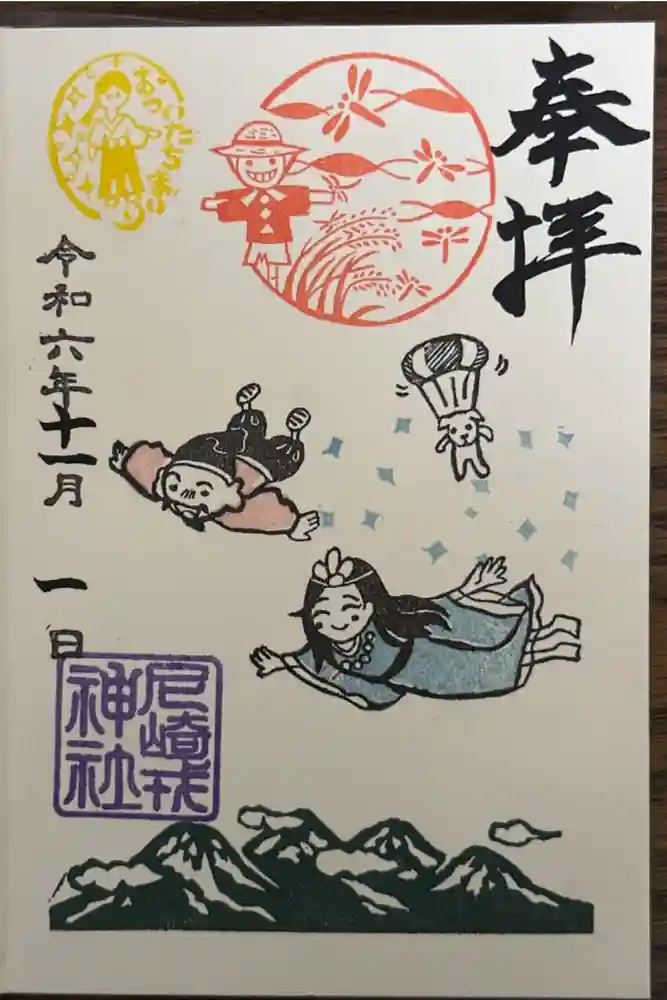 奉拝
おついたちまいり
令和六年十一月 一日
尼崎戎
神社